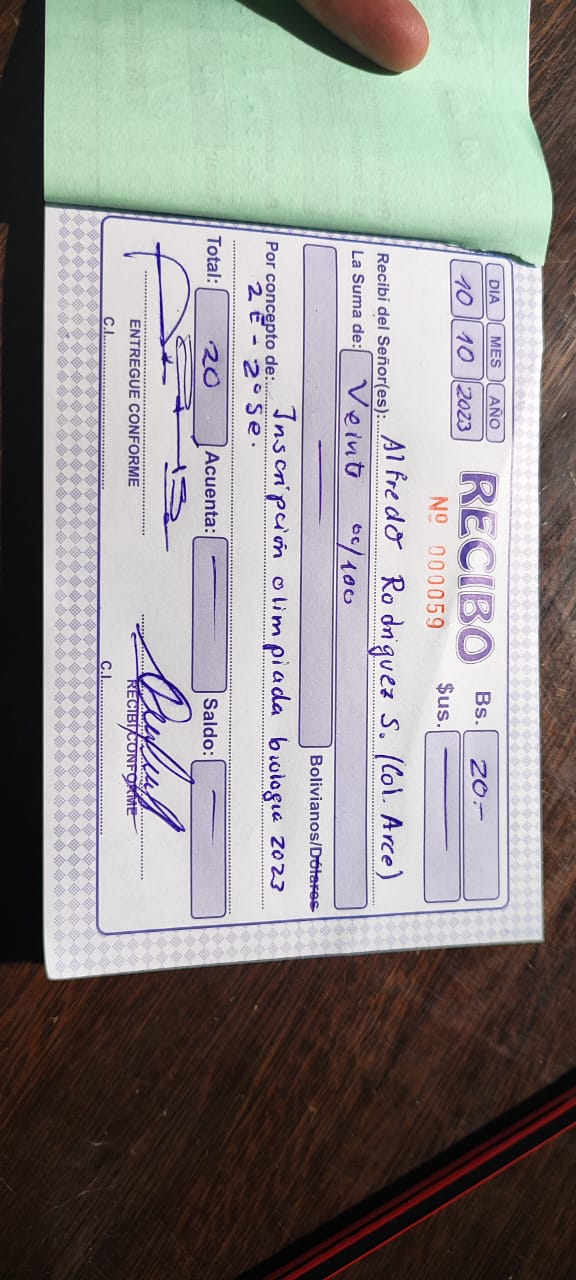 DIA MES AÑO
10 10 2023
RECIBO
Nº 000059
Bs. 20.-
$us.
Recibí del Señor(es): Alfredo Rodriguez S. (Col. Arce)
La Suma de: Veinte 00/100
Bolivianos/Dólares
Por concepto de: Inscripción olimpiada biologia 2023
2E - 2º se.
Total: 20 Acuenta: Saldo:
ENTREGUE CONFORME RECIBI CONFORME
C.I. C.I.